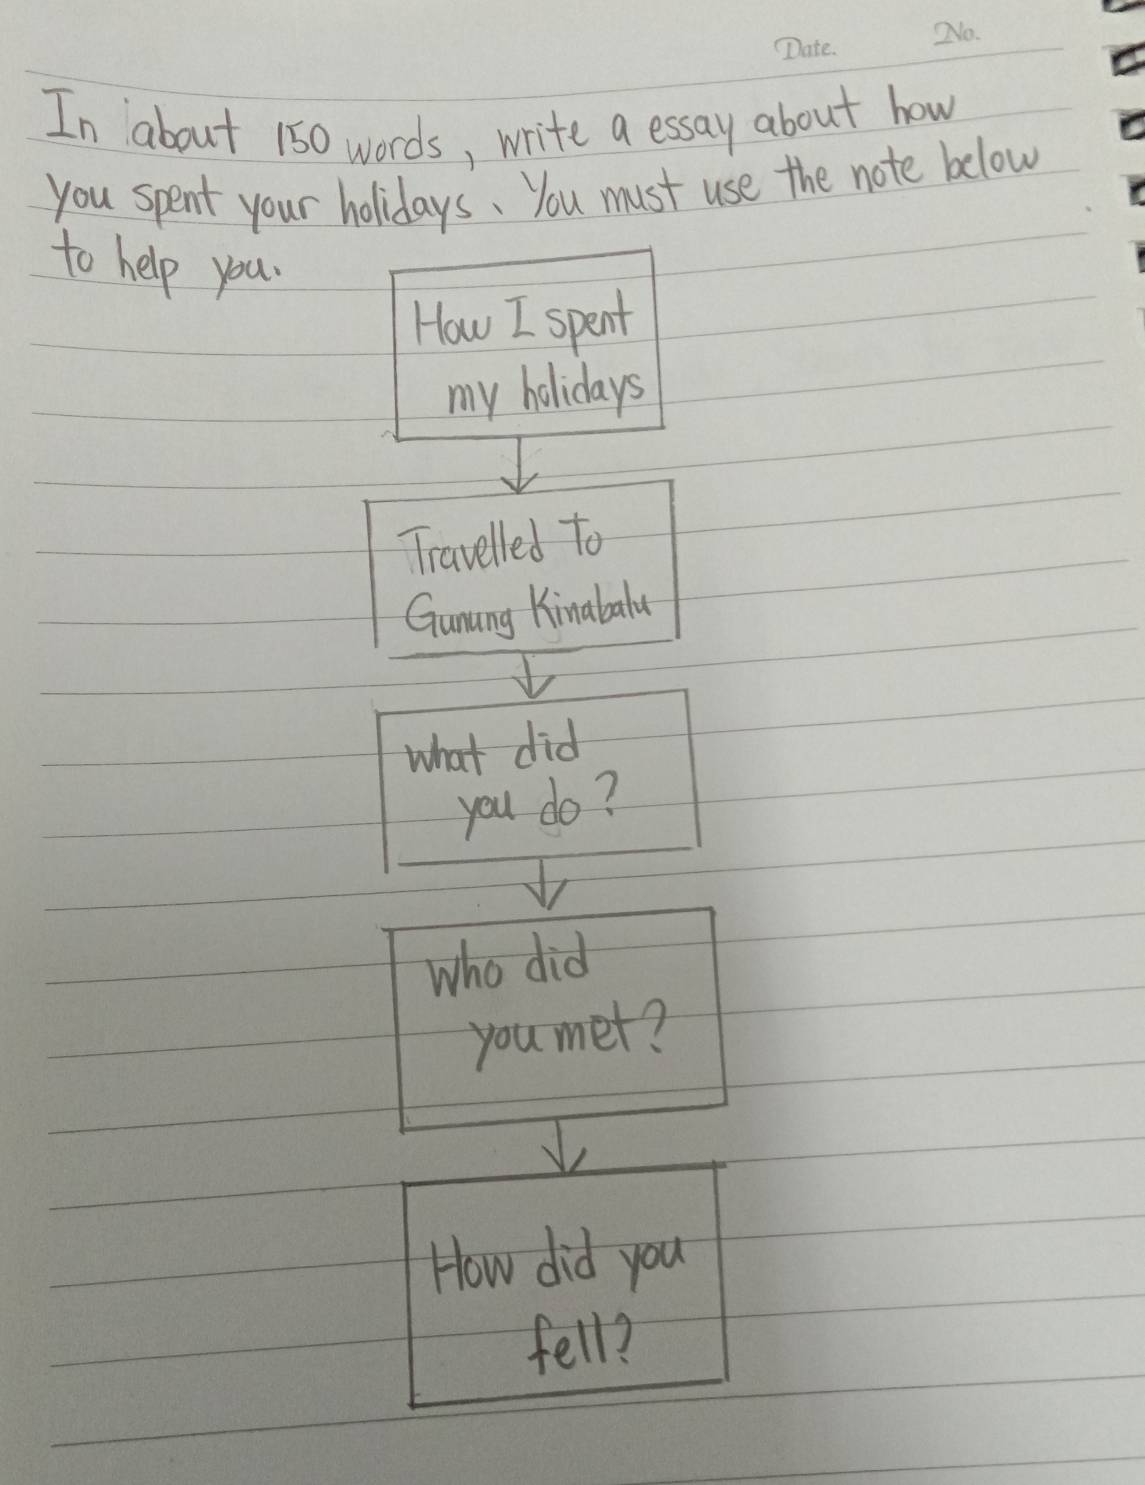 Date. No.
In about 150 words, write a essay about how
you spent your holidays. You must use the note below
to help you.
How I spent
my holidays
Travelled To
Gunung Kinabalu
what did
you do?
Who did
you met?
How did you
fell?